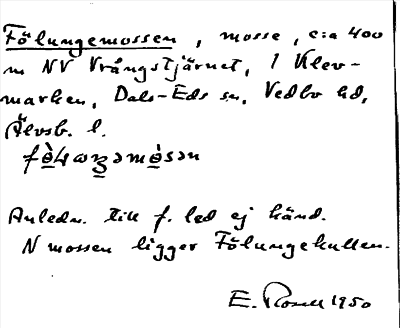 Fölungemossen, mosse, c:a 400
m NV Vrångstjärnet, i Klev-
marken, Dals-Eds sn, Vedbo hd,
Älvsb. l.
Anledn. till f. led ej känd.
N mossen ligger Fölungekullen.
E. Rosell 1950